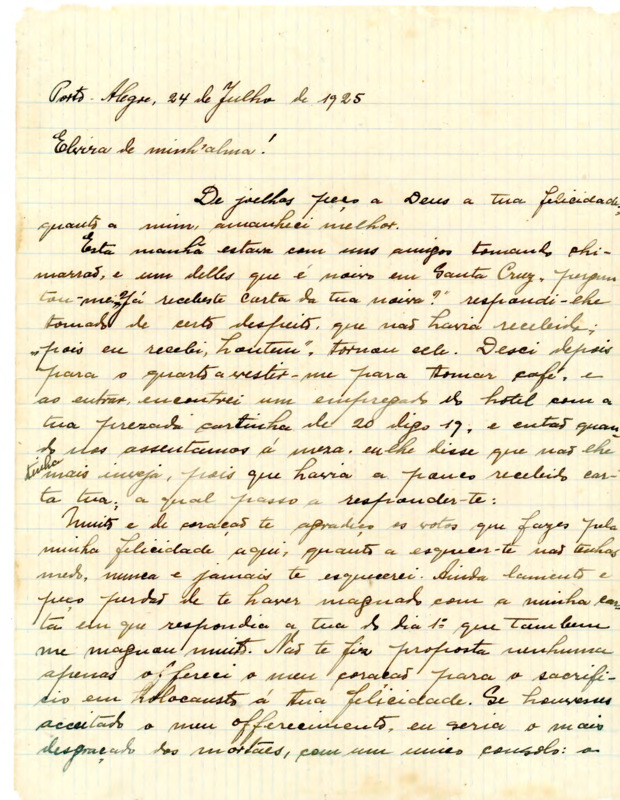 Porto-Alegre, 24 de Julho de 1925
Elvira de minh'alma!
De joelhos peço a Deus a tua felicidade,
quanto a mim, amanheci melhor.
Esta manhã estava com uns amigos tomando chi-
marrão, e um delles que é noivo em Santa Cruz, pergun
tou-me, "Já recebeste carta da tua noiva?" respondi-lhe
tomado de certo despeito, que não havia recebido;
"pois eu recebi, hontem", tornou elle. Desci depois
para o quarto a vestir-me para tomar café, e
ao entrar, encontrei um empregado do hotel com a
tua prezada cartinha de 20 digo 19, e então quan-
do nos assentamos á meza, eu lhe disse que não lhe
tinha mais inveja, pois que havia a pouco recebido car-
ta tua, a qual passo a responder-te:
Muito e de coração te agradeço os votos que fazes pela
minha felicidade aqui, quanto a esquecer-te não tenhas
medo, nunca e jamais te esquecerei. Ainda lamento e
peço perdão de te haver magoado com a minha car-
ta em que respondia a tua do dia 1º que tambem
me magoou muito. Não te fiz proposta nenhuma
apenas offereci o meu coração para o sacrifi-
cio em holocausto á tua felicidade. Se houvesses
acceitado o meu offerecimento, eu seria o mais
desgraçado dos mortaes, com um unico consolo: o